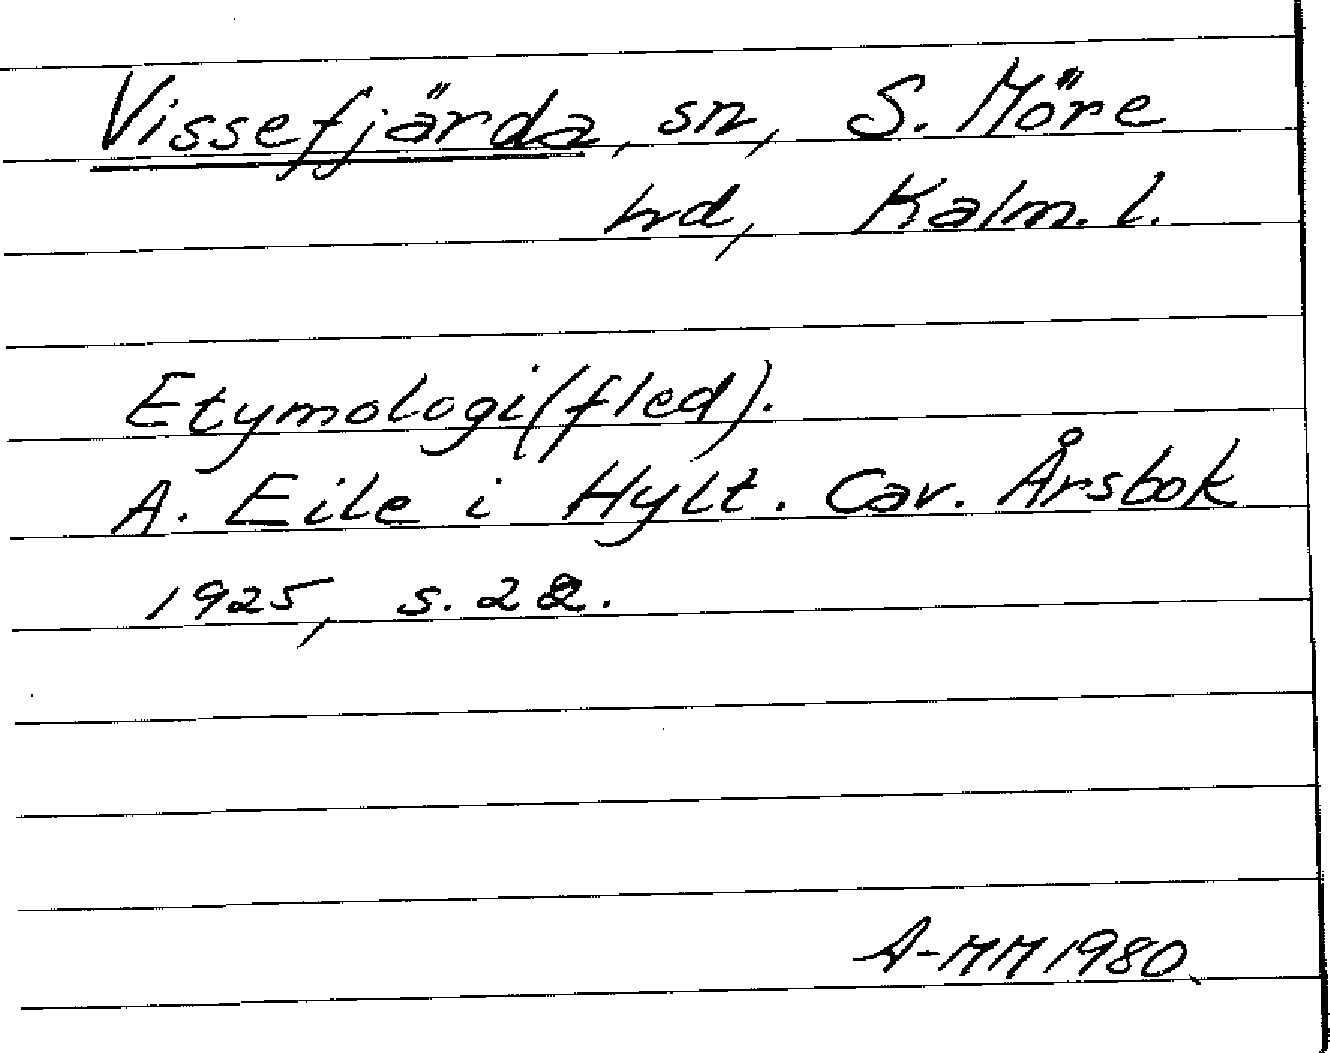 Vissefjärda, sn, S. Möre
hd, Kalm. l.
Etymologi (fled).
A. Eile i Hylt. Cav. Årsbok
1925, s. 22.
A-MM 1980